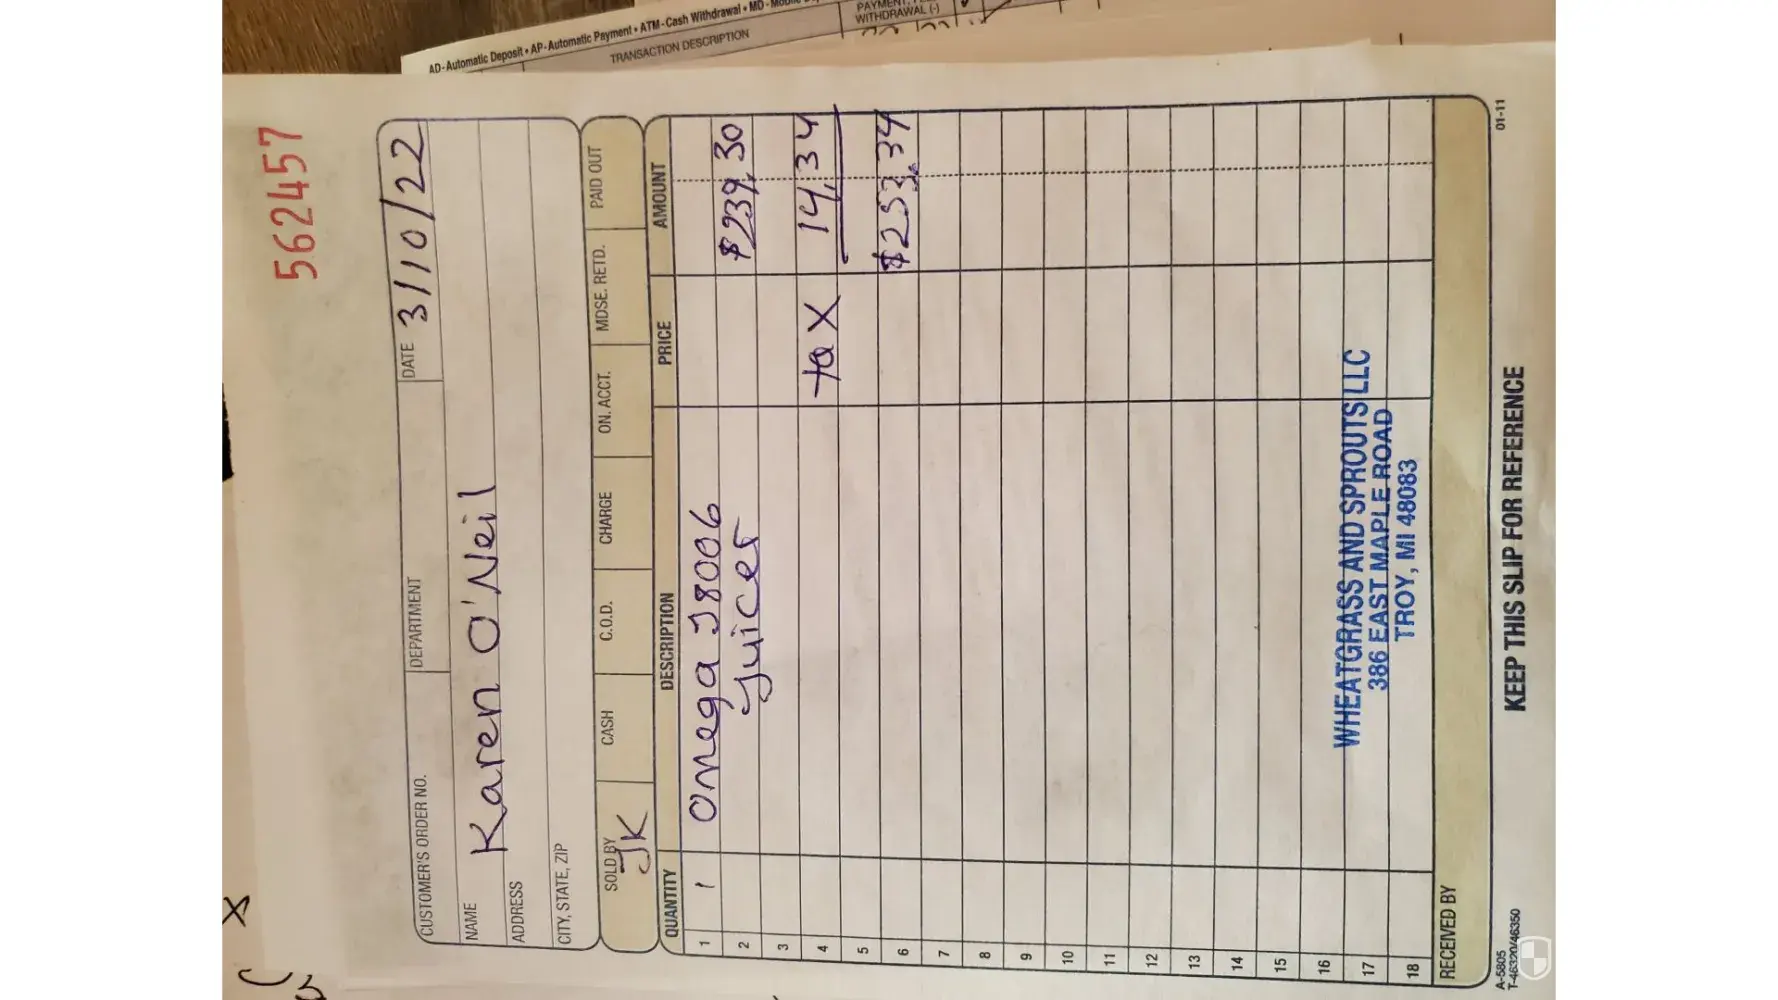 AD-Automatic Deposit • AP-Automatic Payment • ATM-Cash Withdrawal • MD-
TRANSACTION DESCRIPTION
WITHDRAWAL (-)
562457
CUSTOMER'S ORDER NO. DEPARTMENT DATE 3/10/22
NAME Karen O'Neil
ADDRESS
CITY, STATE, ZIP
SOLD BY JK CASH C.O.D. CHARGE ON. ACCT. MDSE. RETD. PAID OUT
QUANTITY DESCRIPTION PRICE AMOUNT
1 1 Omega J8006
2 Juicer $239.30
3
4 tax 14.34
5
6 $253.34
7
8
9
10
11
12
13
14
15
16
17
18
WHEATGRASS AND SPROUTS LLC
386 EAST MAPLE ROAD
TROY, MI 48083
RECEIVED BY
A-5805
T-46320/46350
KEEP THIS SLIP FOR REFERENCE
01-11